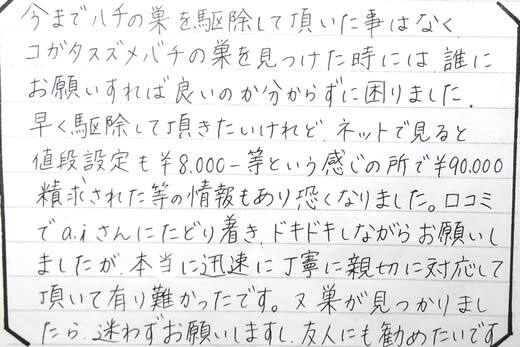 今までハチの巣を駆除して頂いた事はなく、
コガタスズメバチの巣を見つけた時には、誰に
お願いすれば良いのか分からずに困りました。
早く駆除して頂きたいけれど、ネットで見ると
値段設定も¥8.000-等という感じの所で¥90.000
精求された等の情報もあり恐くなりました。口コミ
でa.iさんにたどり着き、ドキドキしながらお願いし
ましたが、本当に迅速に丁寧に親切に対応して
頂いて有り難かったです。又巣が見つかりまし
たら、迷わずお願いしますし、友人にも勧めたいです